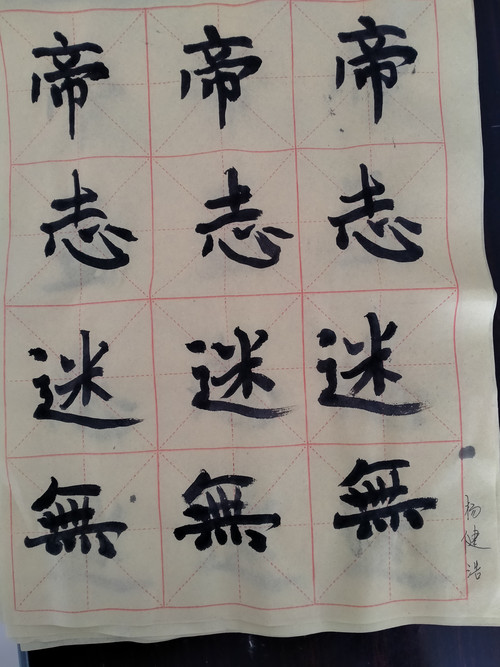 帝帝帝
志志志
迷迷迷
無無無
杨健浩